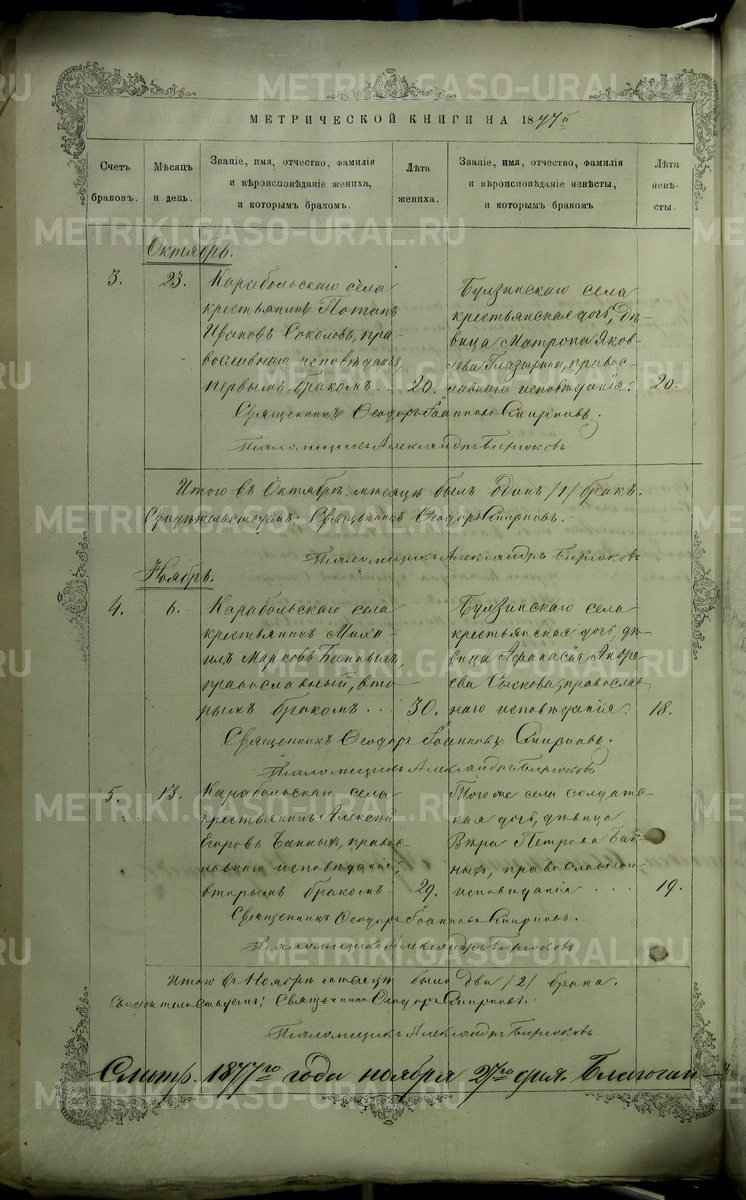 МЕТРИЧЕСКОЙ КНИГИ НА 1877 й
Счетъ браковъ.
Мѣсяцъ и день.
Званіе, имя, отчество, фамилія
и вѣроисповѣданіе жениха,
и которымъ бракомъ.
Лѣта жениха.
Званіе, имя, отчество, фамилія
и вѣроисповѣданіе невѣсты,
и которымъ бракомъ
Лѣта невѣсты.
Октябрь.
3. 23.
Карабольскаго села
крестьянинъ Потапъ
Ивановъ Соколовъ, пра-
вославнаго исповѣданія,
первымъ бракомъ . . 20.
Булзинскаго села
крестьянская дочь, дѣ-
вица Матрона Яков-
лева Глазырина, правос-
лавнаго исповѣданія. 20.
Священникъ Ѳеодоръ Іоанновъ Смирновъ.
Псаломщикъ Александръ Бирюковъ
Итого въ Октябрѣ мѣсяцѣ былъ одинъ /1/ бракъ.
Свидѣтельствуемъ: Священникъ Ѳеодоръ Смирновъ.
Псаломщикъ Александръ Бирюковъ
Ноябрь.
4. 6.
Карабольскаго села
крестьянинъ Миха-
илъ Марковъ Банныхъ,
православный, вто-
рымъ бракомъ . . 30.
Булзинскаго села
крестьянская дочь, дѣ-
вица Афанасія Андре-
ева Сыскова, православ-
наго исповѣданія. 18.
Священникъ Ѳеодоръ Іоанновъ Смирновъ.
Псаломщикъ Александръ Бирюковъ
5. 13.
Карабольскаго села
крестьянинъ Алексѣй
Егоровъ Банныхъ, правос-
лавнаго исповѣданія,
вторымъ бракомъ 29.
Того же села солдатс-
кая дочь, дѣвица
Вѣра Петрова Бан-
ныхъ, православнаго
исповѣданія . . . . 19.
Священникъ Ѳеодоръ Іоанновъ Смирновъ.
Псаломщикъ Александръ Бирюковъ
Итого въ Ноябрѣ мѣсяцѣ было два /2/ брака.
Свидѣтельствуемъ: Священникъ Ѳеодоръ Смирновъ.
Псаломщикъ Александръ Бирюковъ.
1877го года ноября 27го дня. Благочин
METRIKI.GASO-URAL.RU